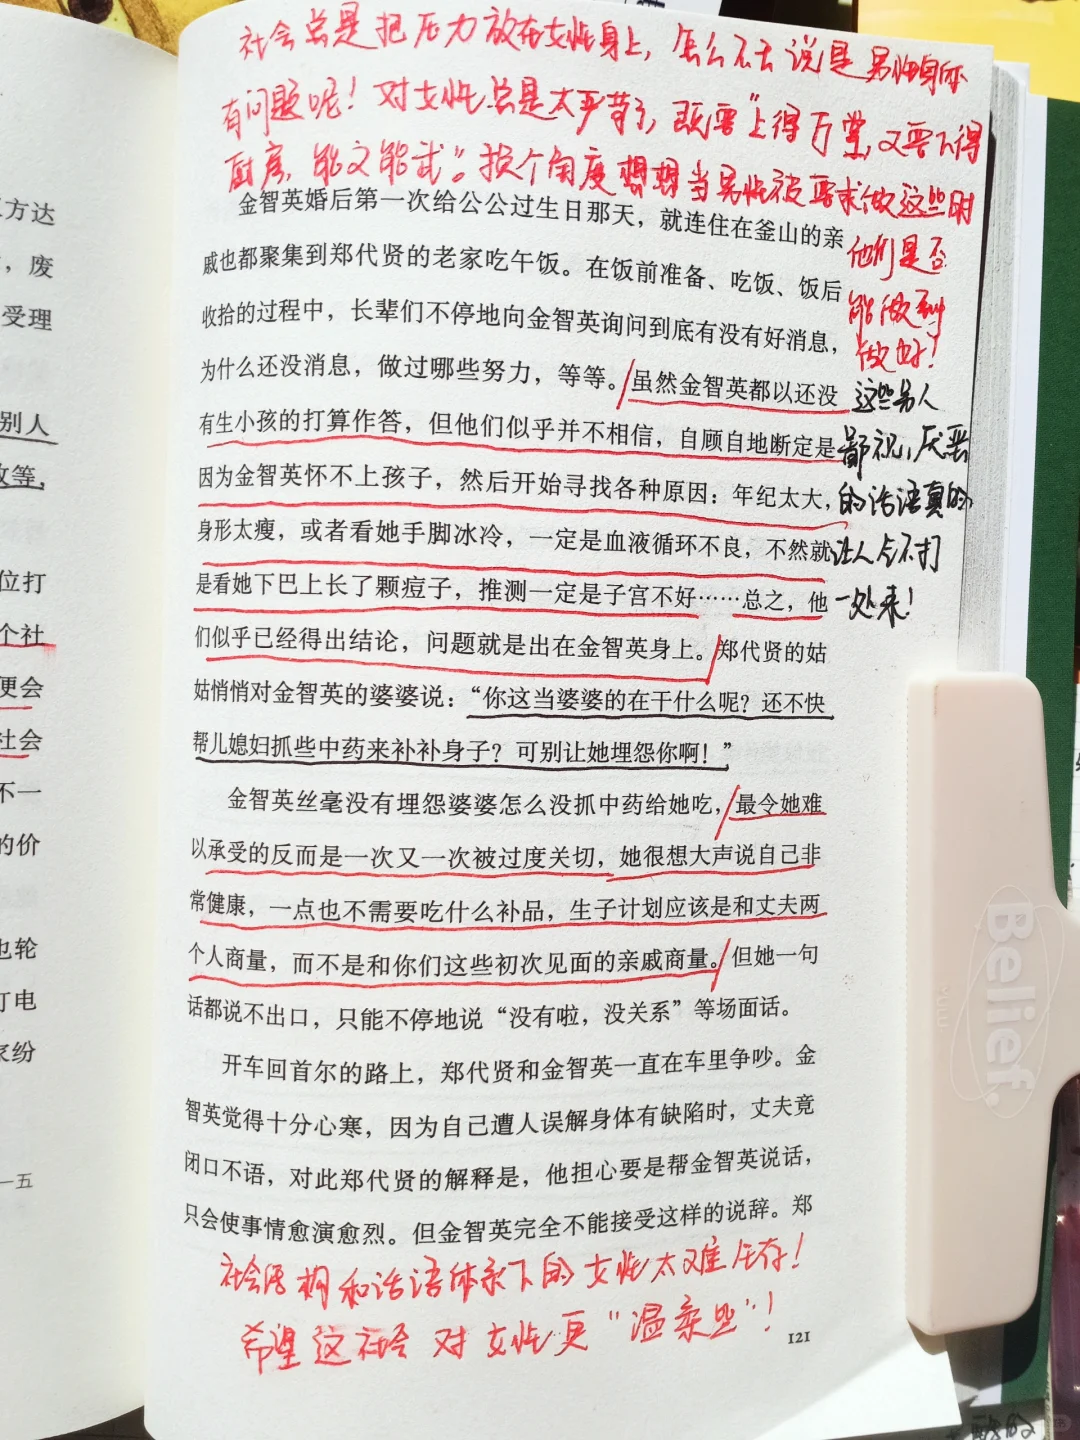 社会总是把压力放在女性身上，怎么不去说是男性身体
有问题呢！对女性总是太严苛了，既要“上得厅堂，又要下得
厨房，能文能武”。换个角度想想当男性被要求做这些时
他们是否
能做到
做好！
金智英婚后第一次给公公过生日那天，就连住在釜山的亲
戚也都聚集到郑代贤的老家吃午饭。在饭前准备、吃饭、饭后
收拾的过程中，长辈们不停地向金智英询问到底有没有好消息，
为什么还没消息，做过哪些努力，等等。虽然金智英都以还没
有生小孩的打算作答，但他们似乎并不相信，自顾自地断定是
因为金智英怀不上孩子，然后开始寻找各种原因：年纪太大，
身形太瘦，或者看她手脚冰冷，一定是血液循环不良，不然就
是看她下巴上长了颗痘子，推测一定是子宫不好……总之，他
们似乎已经得出结论，问题就是出在金智英身上。郑代贤的姑
姑悄悄对金智英的婆婆说：“你这当婆婆的在干什么呢？还不快
帮儿媳妇抓些中药来补补身子？可别让她埋怨你啊！”
金智英丝毫没有埋怨婆婆怎么没抓中药给她吃，最令她难
以承受的反而是一次又一次被过度关切，她很想大声说自己非
常健康，一点也不需要吃什么补品，生子计划应该是和丈夫两
个人商量，而不是和你们这些初次见面的亲戚商量。但她一句
话都说不出口，只能不停地说“没有啦，没关系”等场面话。
开车回首尔的路上，郑代贤和金智英一直在车里争吵。金
智英觉得十分心寒，因为自己遭人误解身体有缺陷时，丈夫竟
闭口不语，对此郑代贤的解释是，他担心要是帮金智英说话，
只会使事情愈演愈烈。但金智英完全不能接受这样的说辞。郑
这些另人
鄙视，厌恶
的话语真的
让人气不打
一处来！
社会结构和话语体系下的女性太难生存！
希望这社会对女性更“温柔些”！
121
方达
，废
受理
别人
等，
位打
个社
便会
社会
不一
的价
也轮
打电
家纷
一五
Belief.